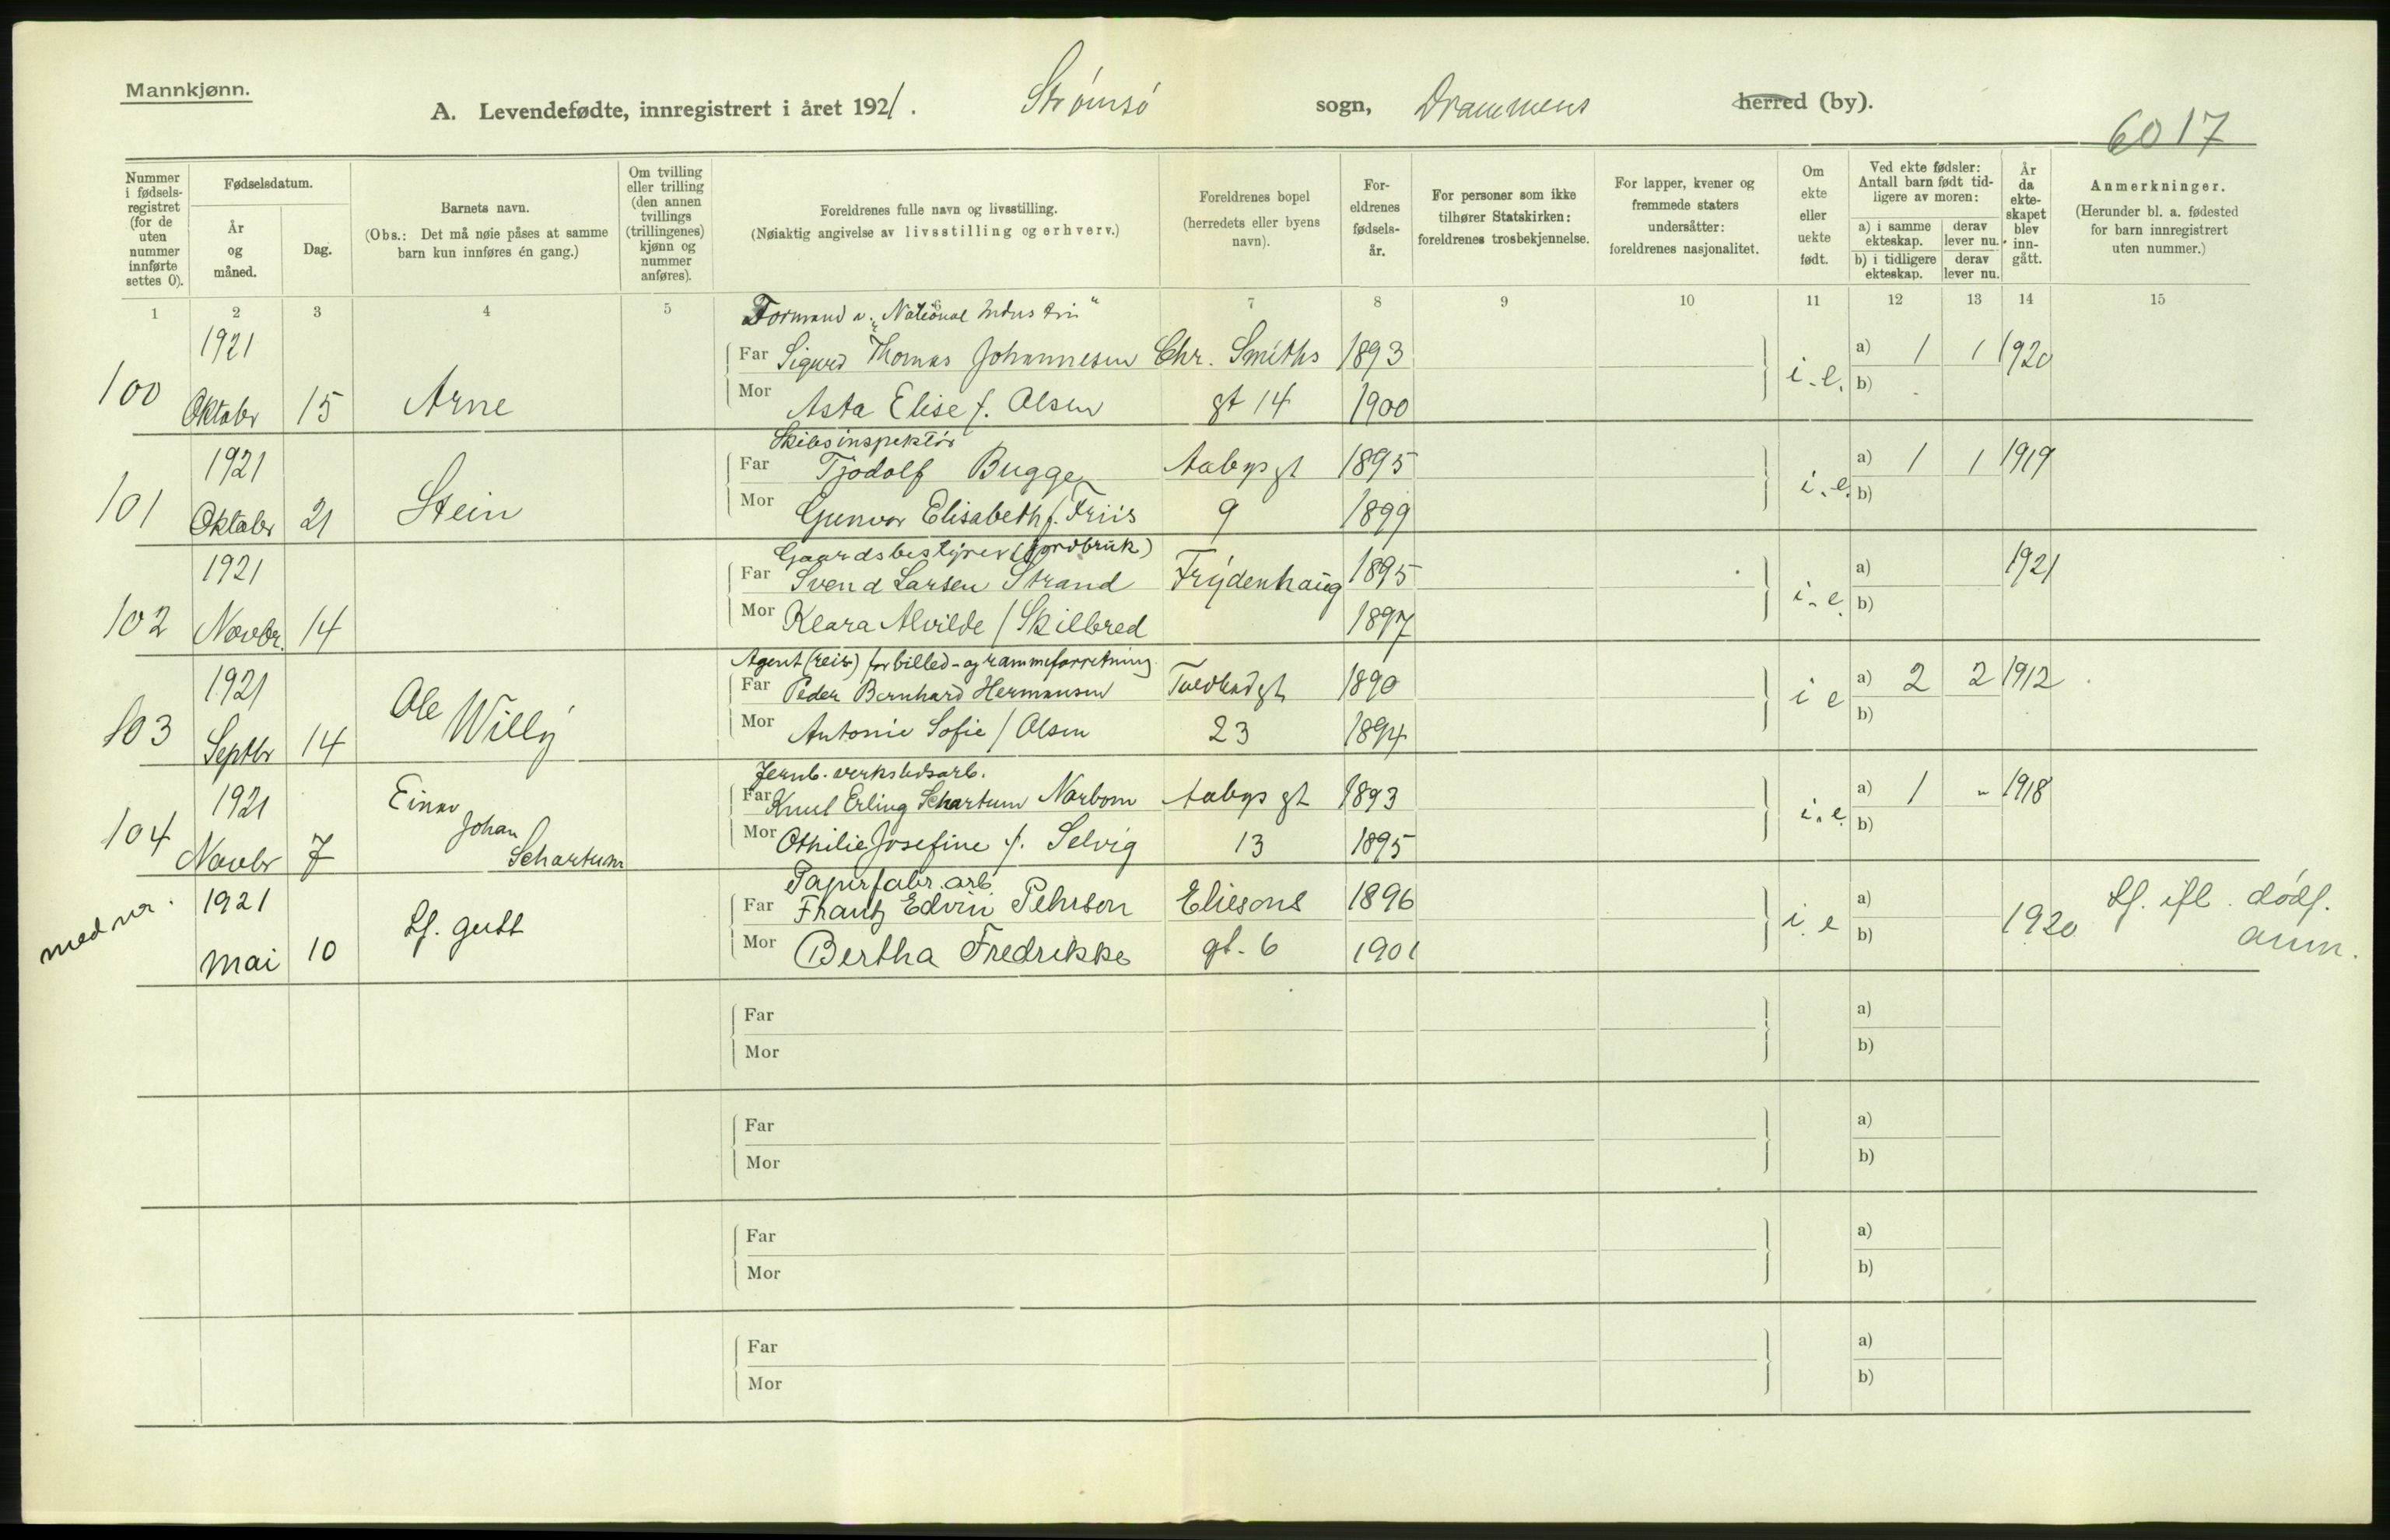 Mannkjønn.
A. Levendefødte, innregistrert i året 1921. Strømsø sogn, Drammens herred (by).
6017
Nummer i fødsels-registret (for de uten nummer innførte settes 0).
Fødselsdatum.
År og måned.
Dag.
Barnets navn.
(Obs.: Det må nøie påses at samme barn kun innføres én gang.)
Om tvilling eller trilling (den annen tvillings (trillingenes) kjønn og nummer anføres).
Foreldrenes fulle navn og livsstilling.
(Nøiaktig angivelse av livsstilling og erhverv.)
Foreldrenes bopel (herredets eller byens navn).
For-eldrenes fødsels-år.
For personer som ikke tilhører Statskirken: foreldrenes trosbekjennelse.
For lapper, kvener og fremmede staters undersåtter: foreldrenes nasjonalitet.
Om ekte eller uekte født.
Ved ekte fødsler: Antall barn født tid-ligere av moren:
a) i samme ekteskap. derav lever nu.
b) i tidligere ekteskap. derav lever nu.
År da ekte-skapet blev inn-gått.
Anmerkninger.
(Herunder bl. a. fødested for barn innregistrert uten nummer.)
1 2 3 4 5 6 7 8 9 10 11 12 13 14 15
Formand v. "National Industri"
1921 Far Sigurd Thomas Johannesen Chr. Smiths 1893 a) 1 1 1920
100 Oktober 15 Arne Mor Asta Elise f. Olsen gt 14 1900 i.e. b)
Skibsinspektør
1921 Far Tjodolf Bugge Aabys gt 1895 a) 1 1 1919
101 Oktober 21 Stein Mor Gunvor Elisabeth f. Friis 9 1899 i.e. b)
Gaardsbestyrer (jordbruk)
1921 Far Svend Larsen Strand Frydenhaug 1895 a) 1921
102 Novbr. 14 Mor Klara Alvilde / Skilbred 1897 i.e. b)
Agent (reis) for billed- og rammeforretning
1921 Far Peder Bernhard Hermansen Toldbodgt 1890 a) 2 2 1912
103 Septbr 14 Ole Willy Mor Antonie Sofie / Olsen 23 1894 i e b)
Jernb. verkstedsarb.
1921 Einar Far Knut Erling Schartum Narbom Aabys gt 1893 a) 1 - 1918
104 Novbr 7 Johan Schartum Mor Othilie Josefine f. Selvig 13 1895 i.e. b)
Papirfabr. arb.
med nr. 1921 Lf. gutt Far Frantz Edvin Pehrson Eliesons 1896 a) Lf. ifl. dødf.
mai 10 Mor Bertha Fredrikke gt. 6 1901 i e b) 1920 anm.
Far a)
Mor b)
Far a)
Mor b)
Far a)
Mor b)
Far a)
Mor b)